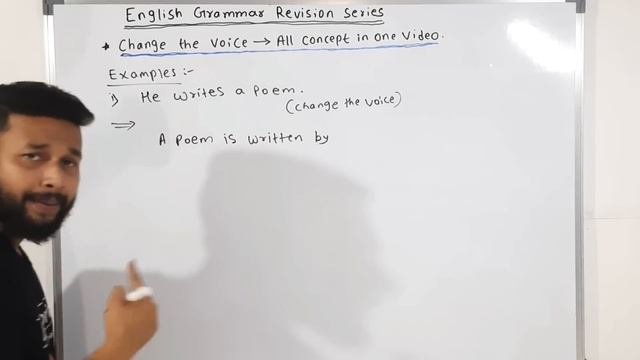 English Grammar Revision Series
* Change the Voice → All Concept in one Video.
Examples:-
i) He writes a Poem.
(change the voice)
⇒
A Poem is written by